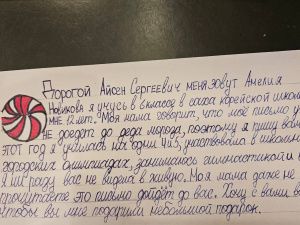 Дорогой Айсен Сергеевич меня зовут Амелия
Новикова я учусь в 6 классе в саха корейской школе
мне 12 лет. Моя мама говорит, что моё письмо
не доедет до деда мороза, поэтому я пишу вам
этот год я училась на одни 4и5, участвовала в школьн
городских олимпиадах, занимаюсь гимнастикой и
Я ни разу вас не видела в живую. Моя мама даже не
прочитаете это письмо дойдёт до вас. Хочу с вами
Чтобы вы мне подарили небольшой подарок.